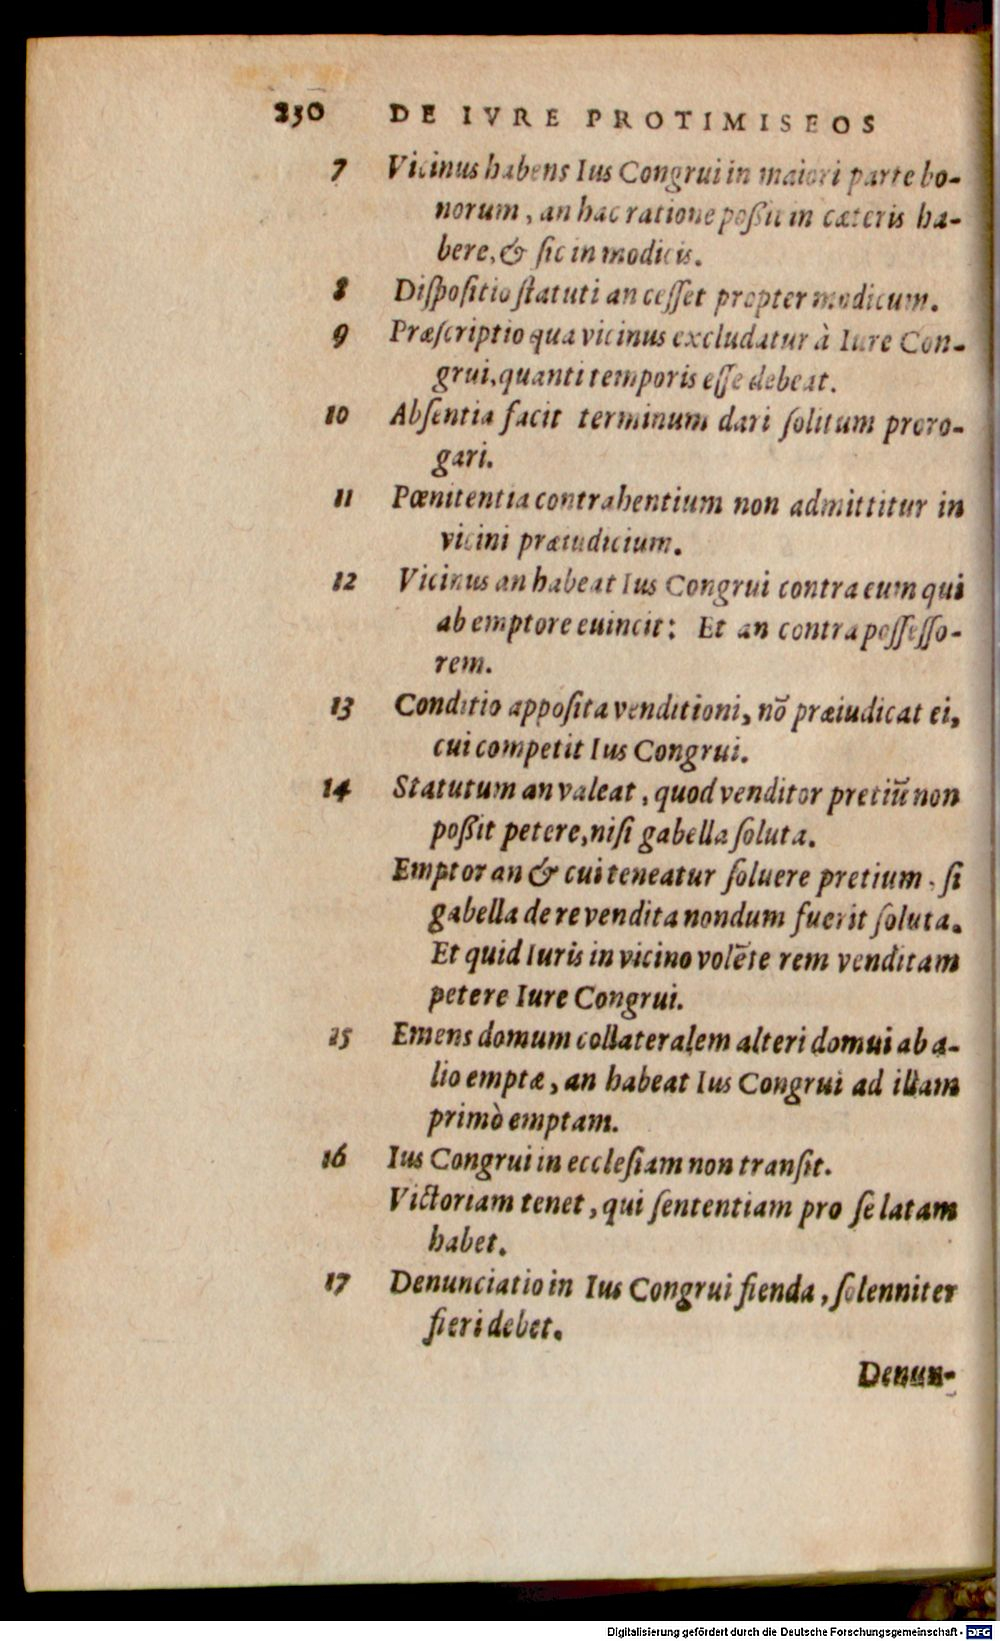 250 DE IVRE PROTIMISEOS
7 Vicinus habens Ius Congrui in maiori parte bo-
norum, an hac ratione poßit in cæteris ha-
bere, & ſic in modicis.
8 Diſpoſitio ſtatuti an ceſſet propter modicum.
9 Præſcriptio qua vicinus excludatur à Iure Con-
grui, quanti temporis eſſe debeat.
10 Abſentia facit terminum dari ſolitum proro-
gari.
11 Pœnitentia contrahentium non admittitur in
vicini præiudicium.
12 Vicinus an habeat Ius Congrui contra eum qui
ab emptore euincit: Et an contra poſſeſſo-
rem.
13 Conditio appoſita venditioni, nō præiudicat ei,
cui competit Ius Congrui.
14 Statutum an valeat, quod venditor pretiū non
poßit petere, niſi gabella ſoluta.
Emptor an & cui teneatur ſoluere pretium, ſi
gabella de re vendita nondum fuerit ſoluta.
Et quid Iuris in vicino volēte rem venditam
petere Iure Congrui.
15 Emens domum collateralem alteri domui ab a-
lio emptæ, an habeat Ius Congrui ad illam
primò emptam.
16 Ius Congrui in eccleſiam non tranſit.
Victoriam tenet, qui ſententiam pro ſe latam
habet.
17 Denunciatio in Ius Congrui fienda, ſolenniter
fieri debet.
Denun-
Digitalisierung gefördert durch die Deutsche Forschungsgemeinschaft - DFG